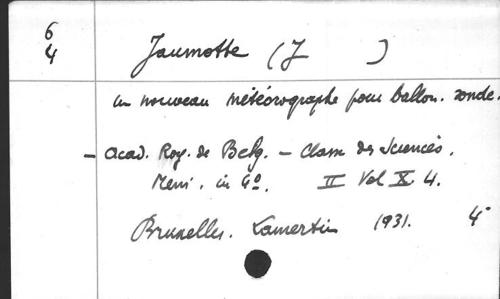 6
4
Jaumotte (J )
un nouveau météorographe pour ballon. sonde.
- Acad. Roy. de Belg. - Classe des Sciences.
Mem. in 4º. II Vol X. 4.
Bruxelles. Lamertin 1931. 4º